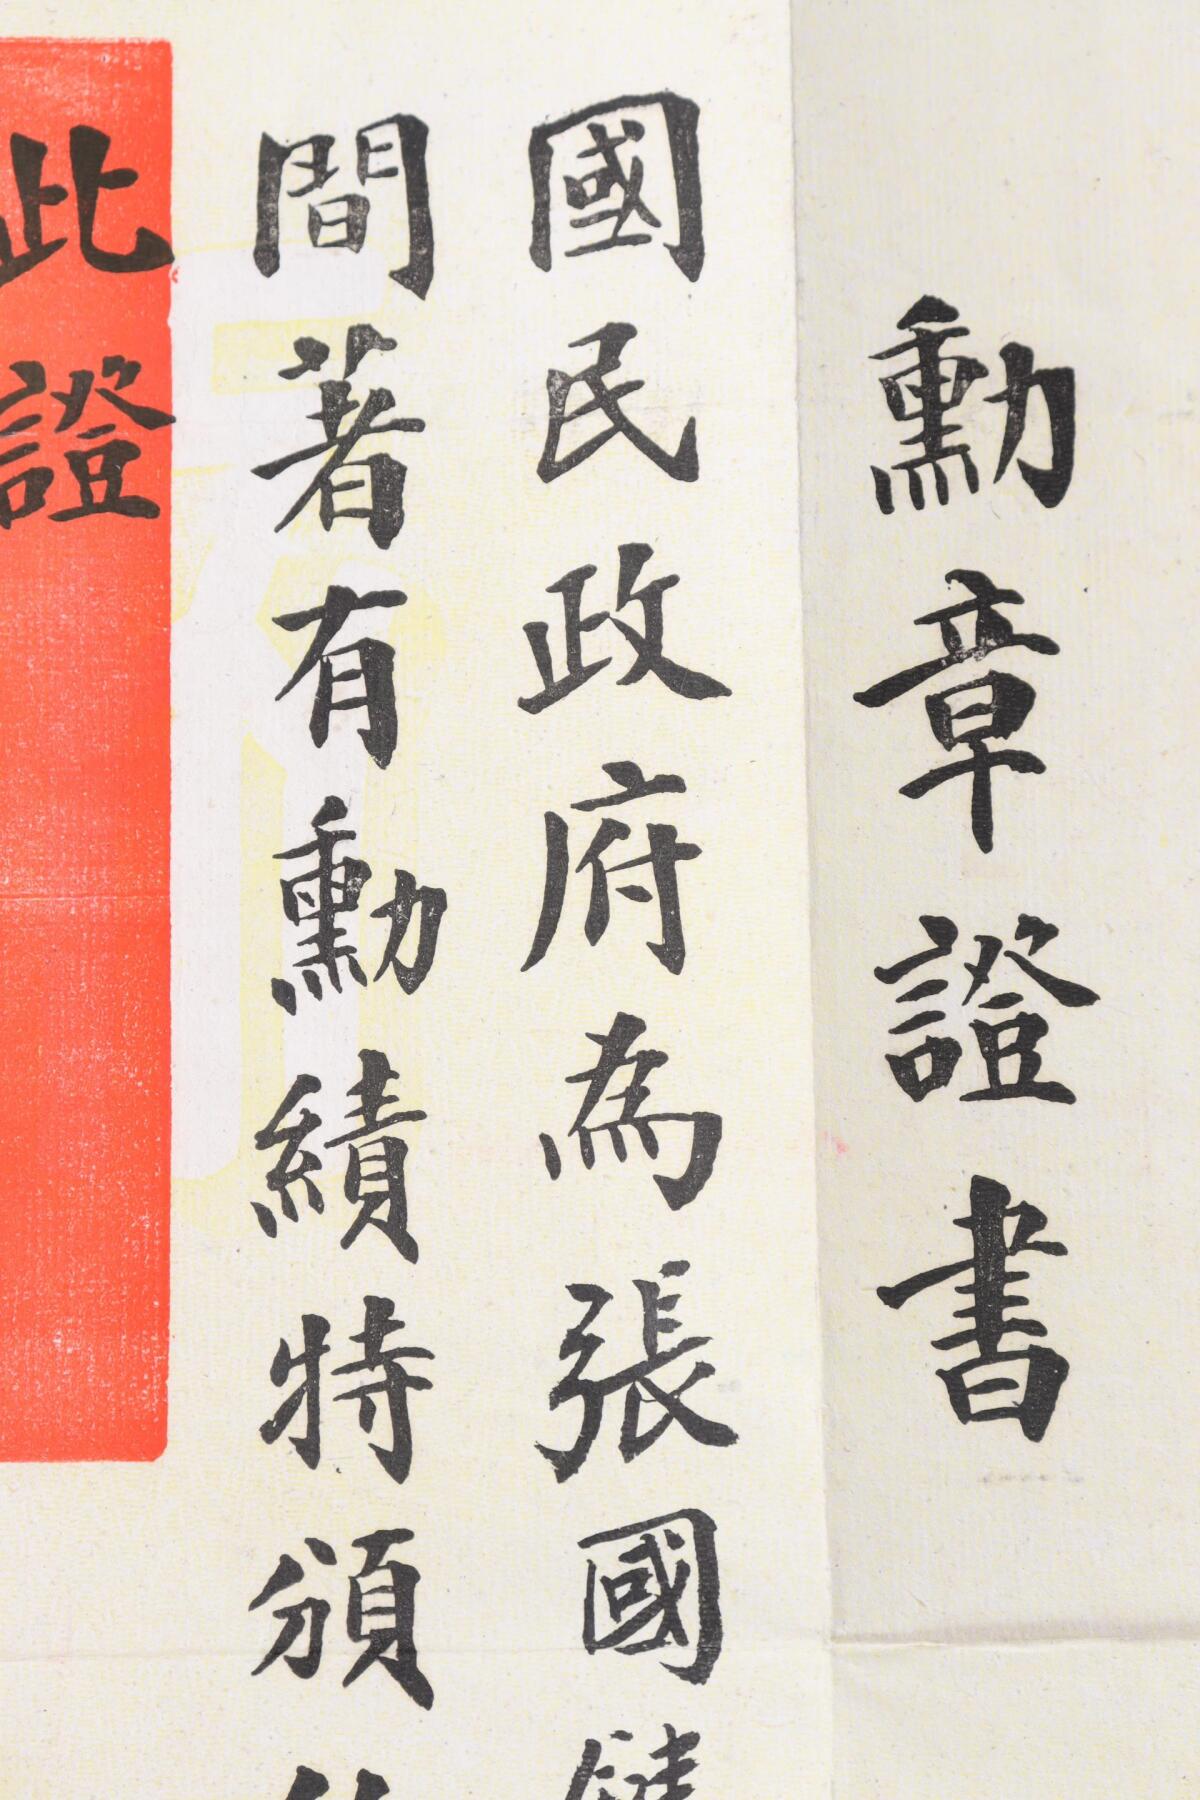 勳章證書
國民政府為張國
間著有勳績特頒
此證